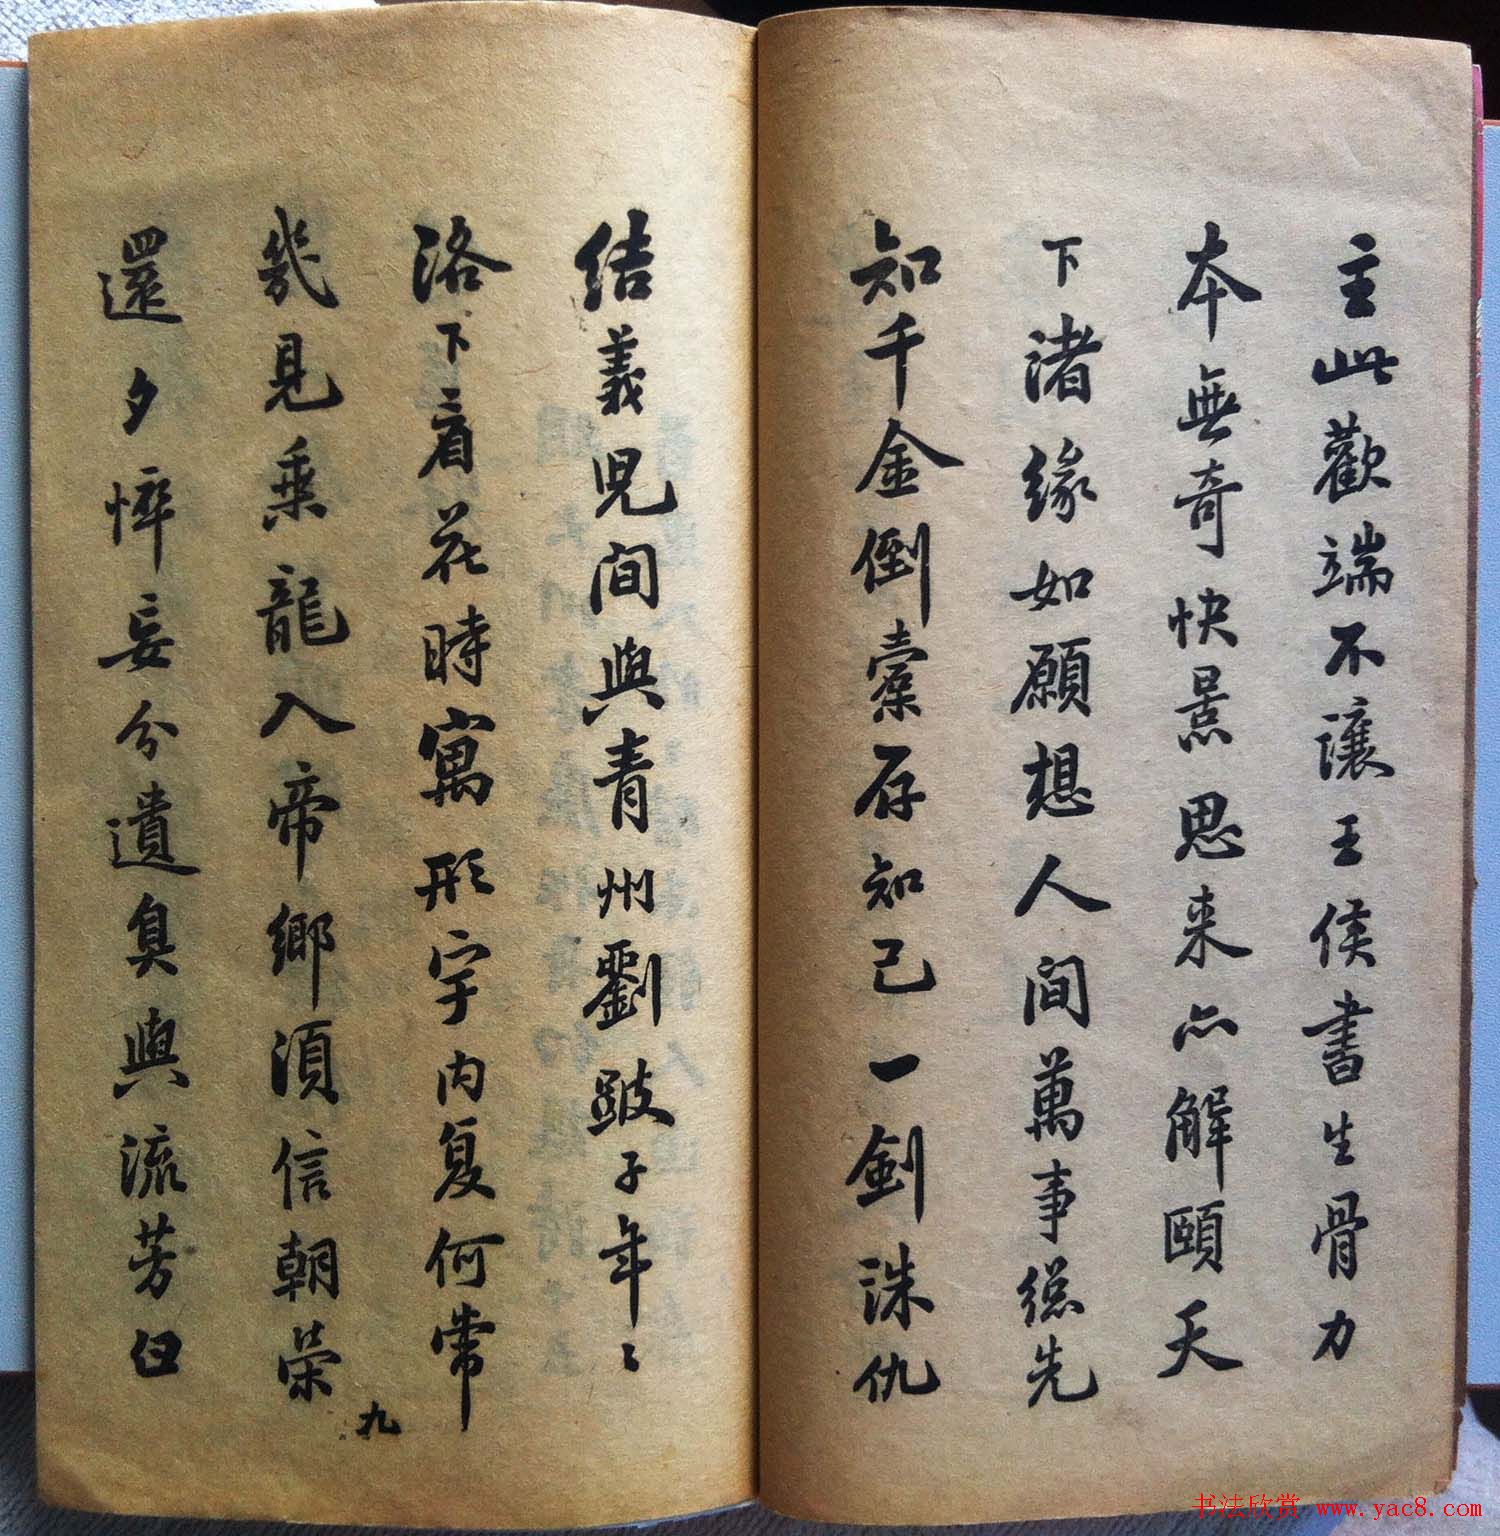 主此歡端不讓王侯書生骨力
本無奇快景思来亦解頤天
下渚緣如願想人間萬事總先
知千金倒橐存知己一劍誅仇
結義児間與青州劉跛子年〻
洛下看花時寓形宇内复何常
幾見乗龍入帝鄉須信朝榮
還夕悴妄分遺臭與流芳白
九
书法欣赏 www.yac8.com